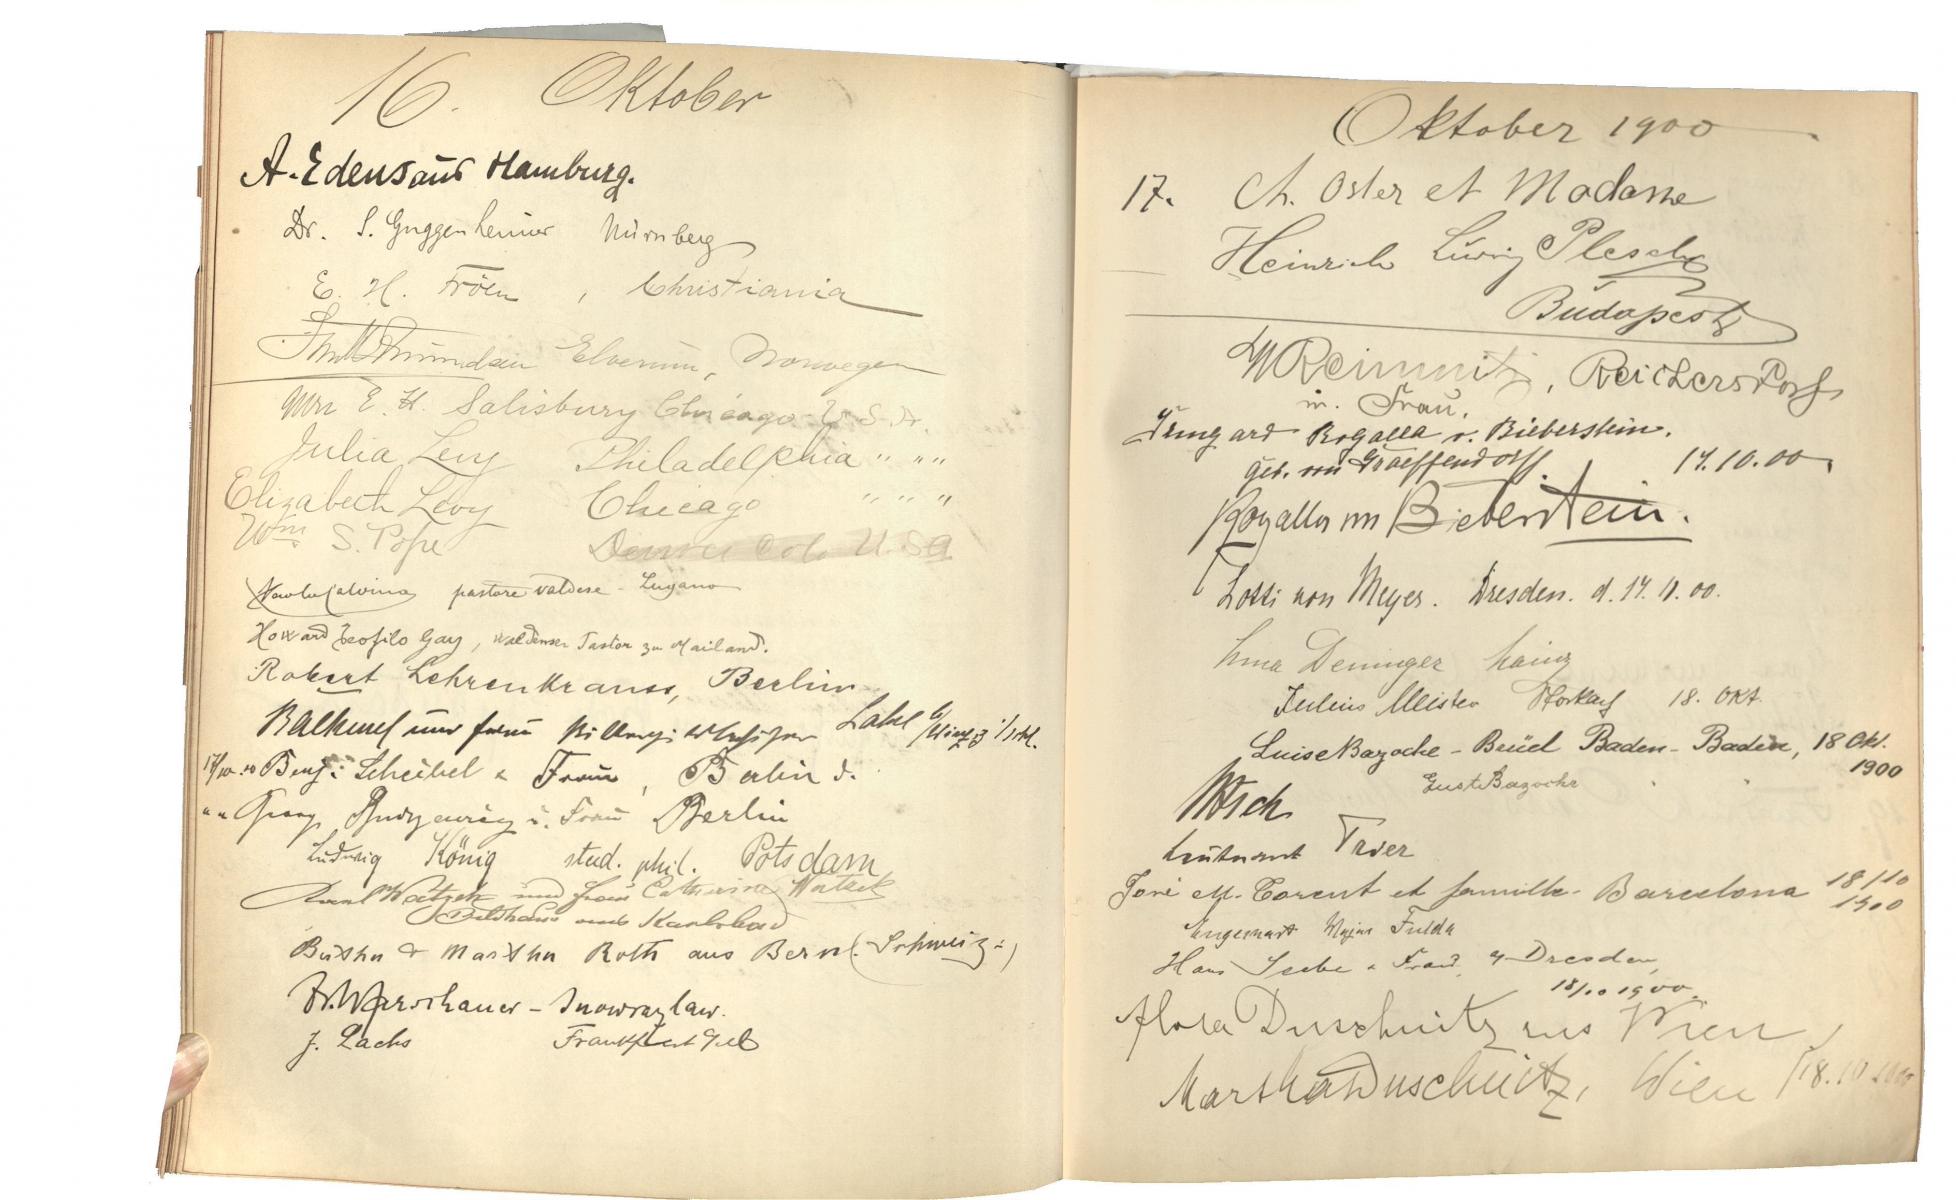 16. Oktober
A. Edens aus Hamburg.
Dr. S. Guggenheimer Nürnberg
E. H. Fröen, Christiania
Elverum, Norwegen
Mrs E. H. Salisbury Chicago U. S. A.
Julia Levy Philadelphia " " "
Elizabeth Levy Chicago " " "
Wm S. Pope Denver Col. U. S. A
pastore valdese - Lugano
Howard Teofilo Gay, Waldenser Pastor zu Mailand.
Robert Lehrenkrauss, Berlin
und Frau
Scheibel & Frau, Berlin
" " Georg u. Frau Berlin
Ludwig König stud. phil. Potsdam
Karl Watzek und Frau Catharina Watzek
Bildhauer aus Karlsbad
Bertha & Martha Roth aus Bern (Schweiz)
Dr. Warschauer - Inowrazlaw.
J. Lachs Frankfurt
Oktober 1900
17. Ch. Oster et Madame
Heinrich Ludwig Plesch
Budapest
Reimnitz, Reichersdorf
m. Frau.
Irmgard Rogalla v. Bieberstein.
geb. von Graeffendorff. 17.10.00
Rogalla von Bieberstein.
Lotti von Meyer. Dresden. d. 17. 11. 00.
Irma Deninger Mainz
Julius Meister 18. Okt.
Luise Bazoche - Beüel Baden-Baden, 18 Okt.
1900
Gust Bazoche " "
Leutnant Trier
José M. Torent et famille - Barcelona 18/10
1900
Major Fulda
Hans & Frau Dresden,
18/10 1900.
Flora Duschnitz aus Wien
Martha Duschnitz, Wien 18.10.1900